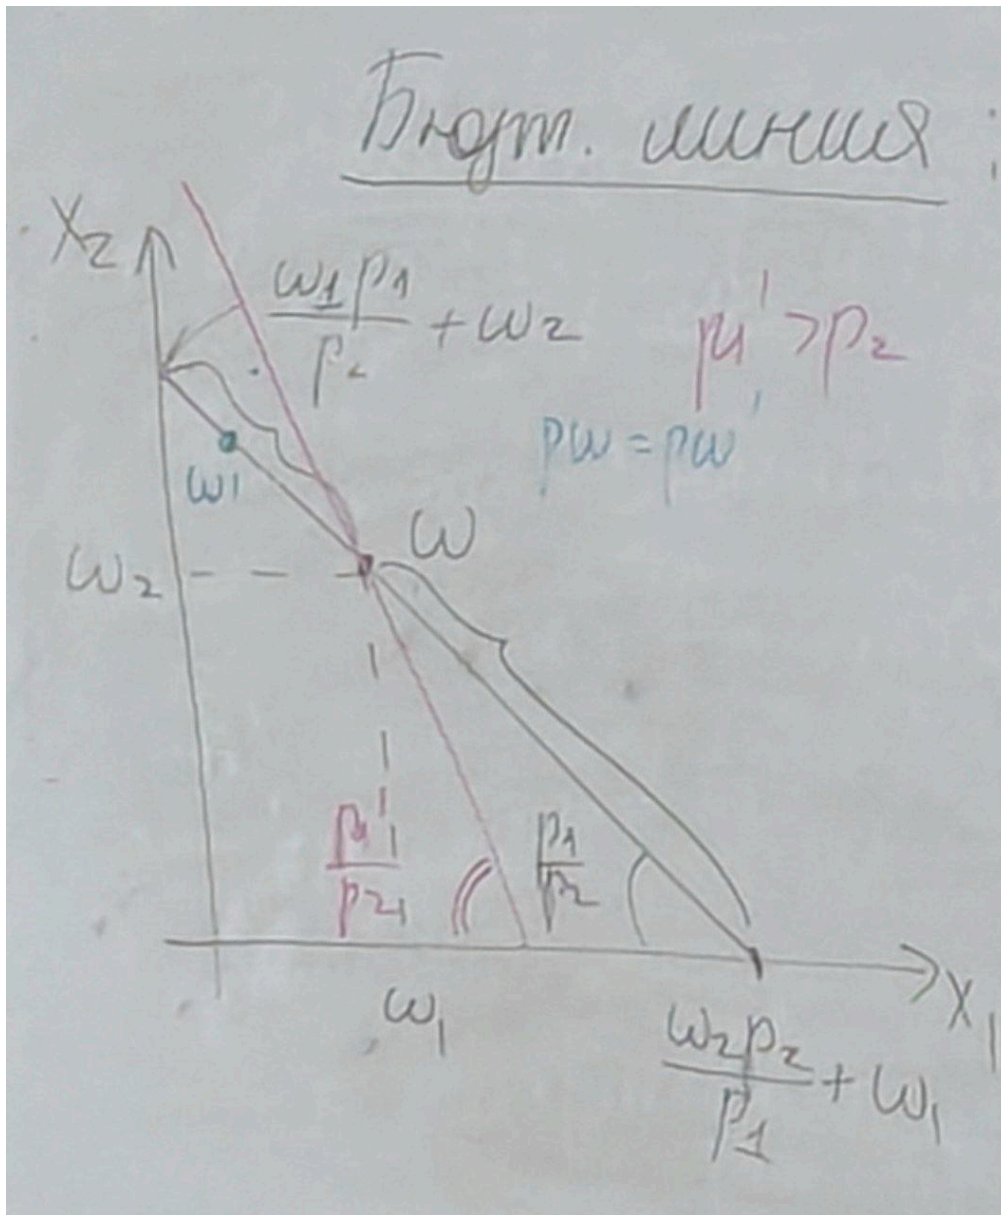 Бюдж. линия :
X₂
ω₁p₁/p₂ + ω₂
p₁' > p₂
pω = pω'
ω'
ω
ω₂
p₁'/p₂
p₁/p₂
ω₁
X₁
ω₂p₂/p₁ + ω₁